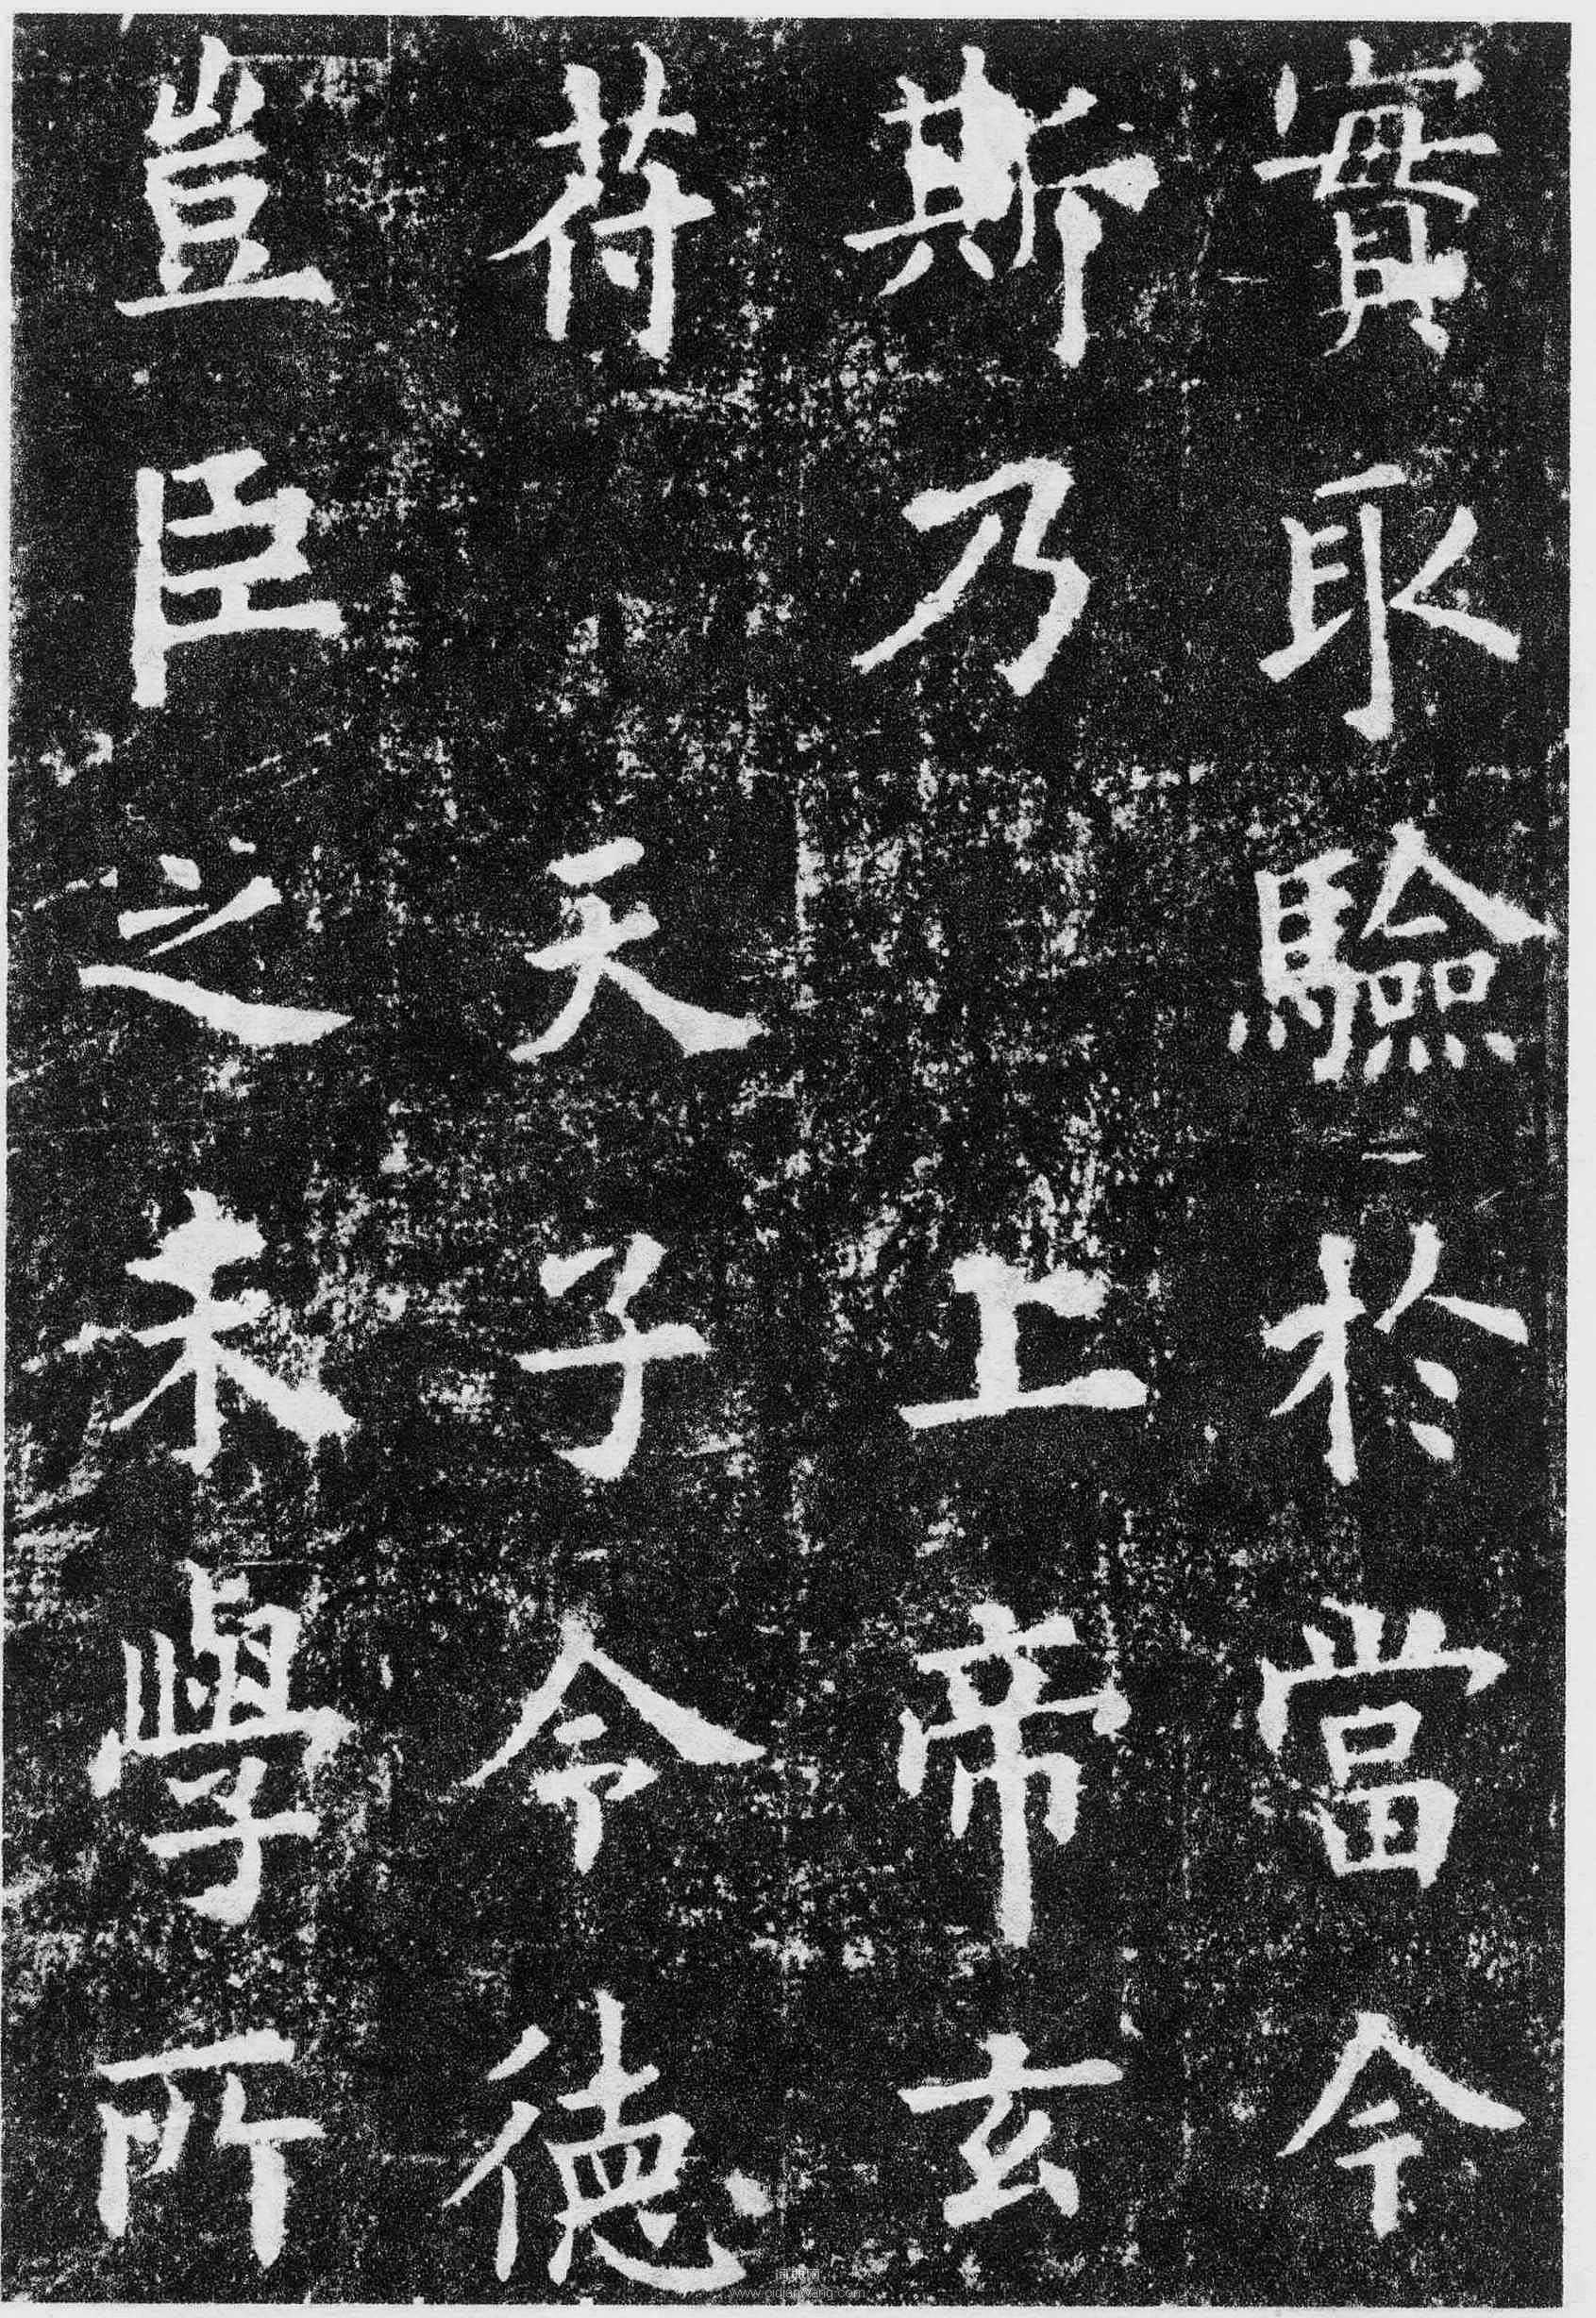 實取驗於當今
斯乃上帝玄
符天子令德
豈臣之末學所
www.qidianwang.com